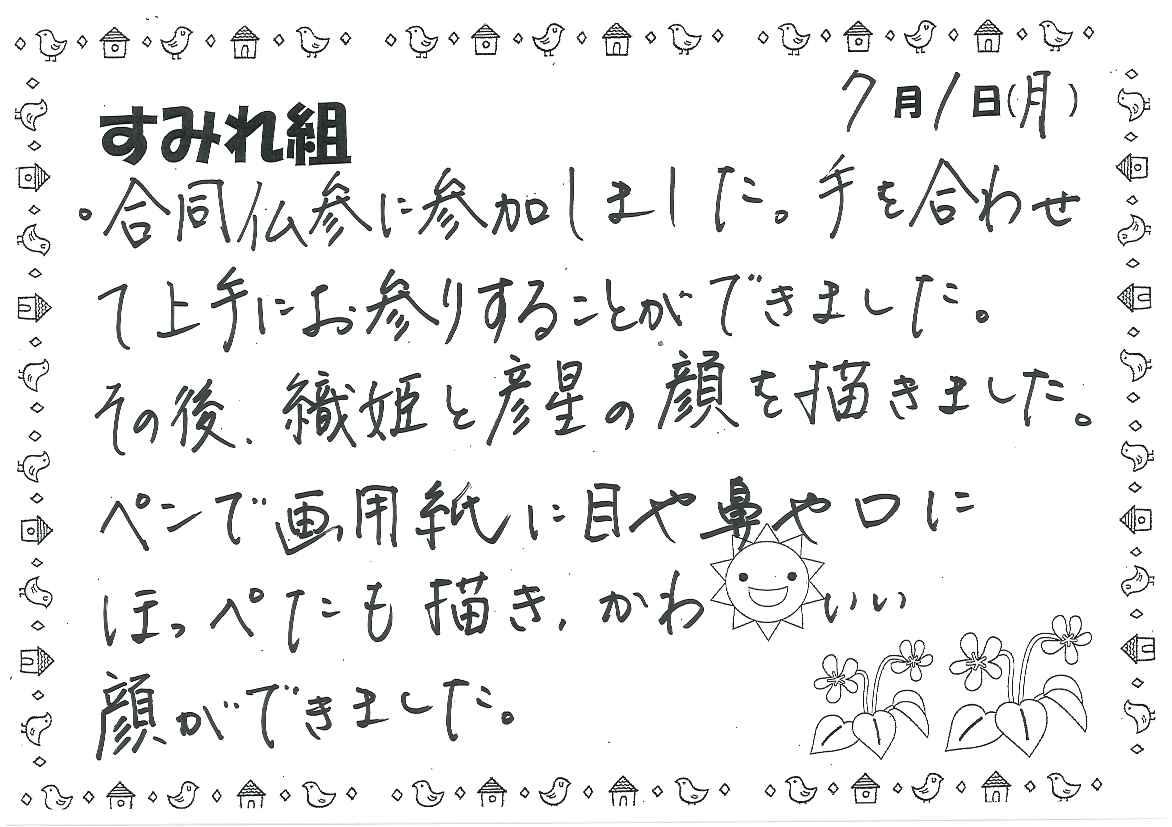 7月1日(月)
すみれ組
。合同仏参に参加しました。手を合わせ
て上手にお参りすることができました。
その後、織姫と彦星の顔を描きました。
ペンで画用紙に目や鼻や口に
ほっぺたも描き、かわいい
顔ができました。